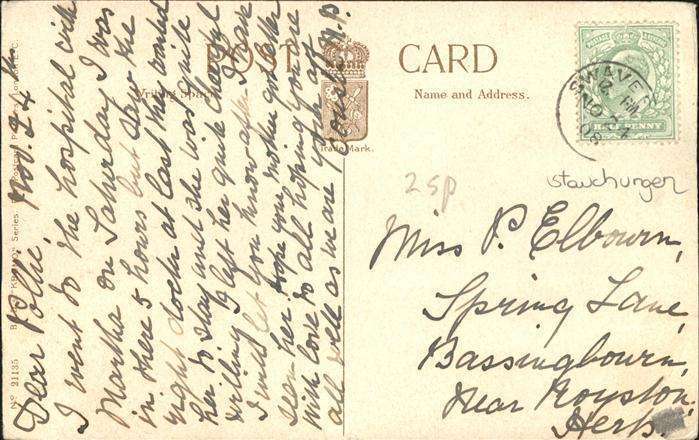 POST CARD
Writing Space.
Name and Address.
Trade Mark.
Dear Pollie. Nov. 24th
I went to the hospital with
Martha on Saturday I was
in there 5 hours but saw the
night doctor at last he wanted
her to stay and she was quite
willing I left her quite cheerful
I will let you know after I have
seen her. hope you mother got
with love to all hoping you are
all well as we are
Yours
SWAVE
NO 24
08
HALFPENNY
25p
Miss P. Elbourn,
Spring Lane,
Bassingbourn,
Near Royston,
Herts.
No 21135
Series.